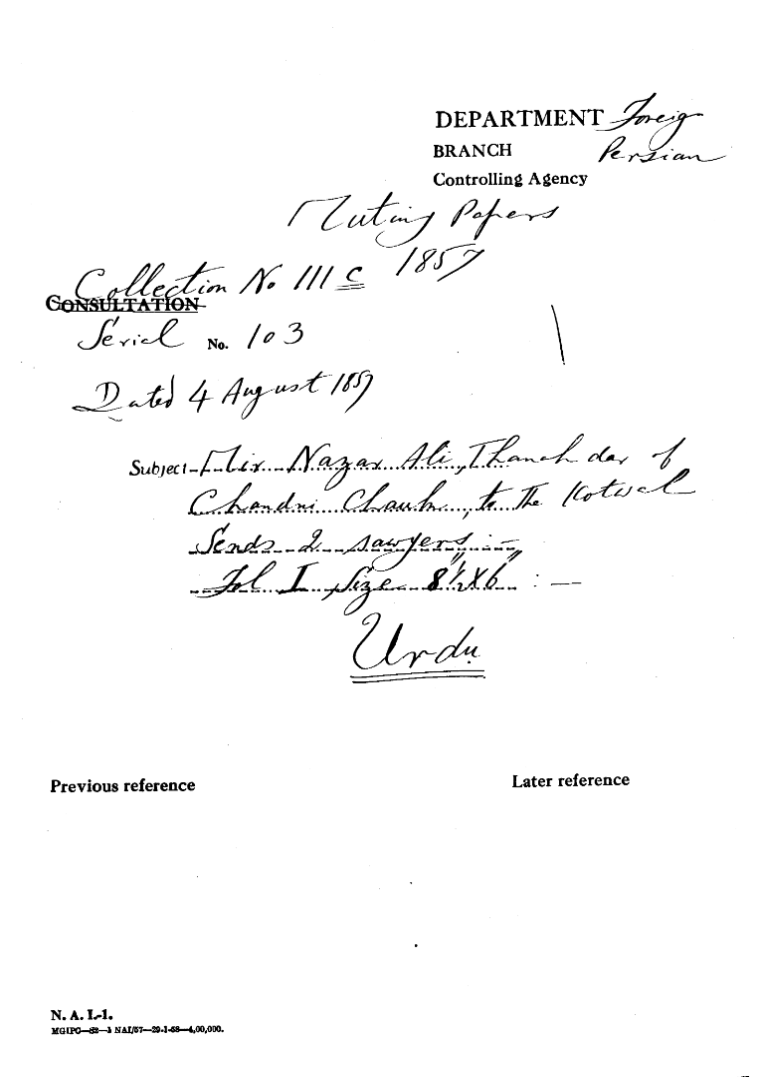 DEPARTMENT Foreig
BRANCH Persian
Controlling Agency
Mutiny Papers
1857
Collection No III C
CONSULTATION
Seriel No. 103
Dated 4 August 1857
Subject- Mir Nazar Ali, Thanah dar of
Chandni Chauk, to the Kotwal
Sends 2 sawyers :-
Fol I, Size 8½" X 6" : —
Urdu
Previous reference
Later reference
N. A. I.-1.
MGIPC—82—3 NAI/57—29-1-58—4,00,000.